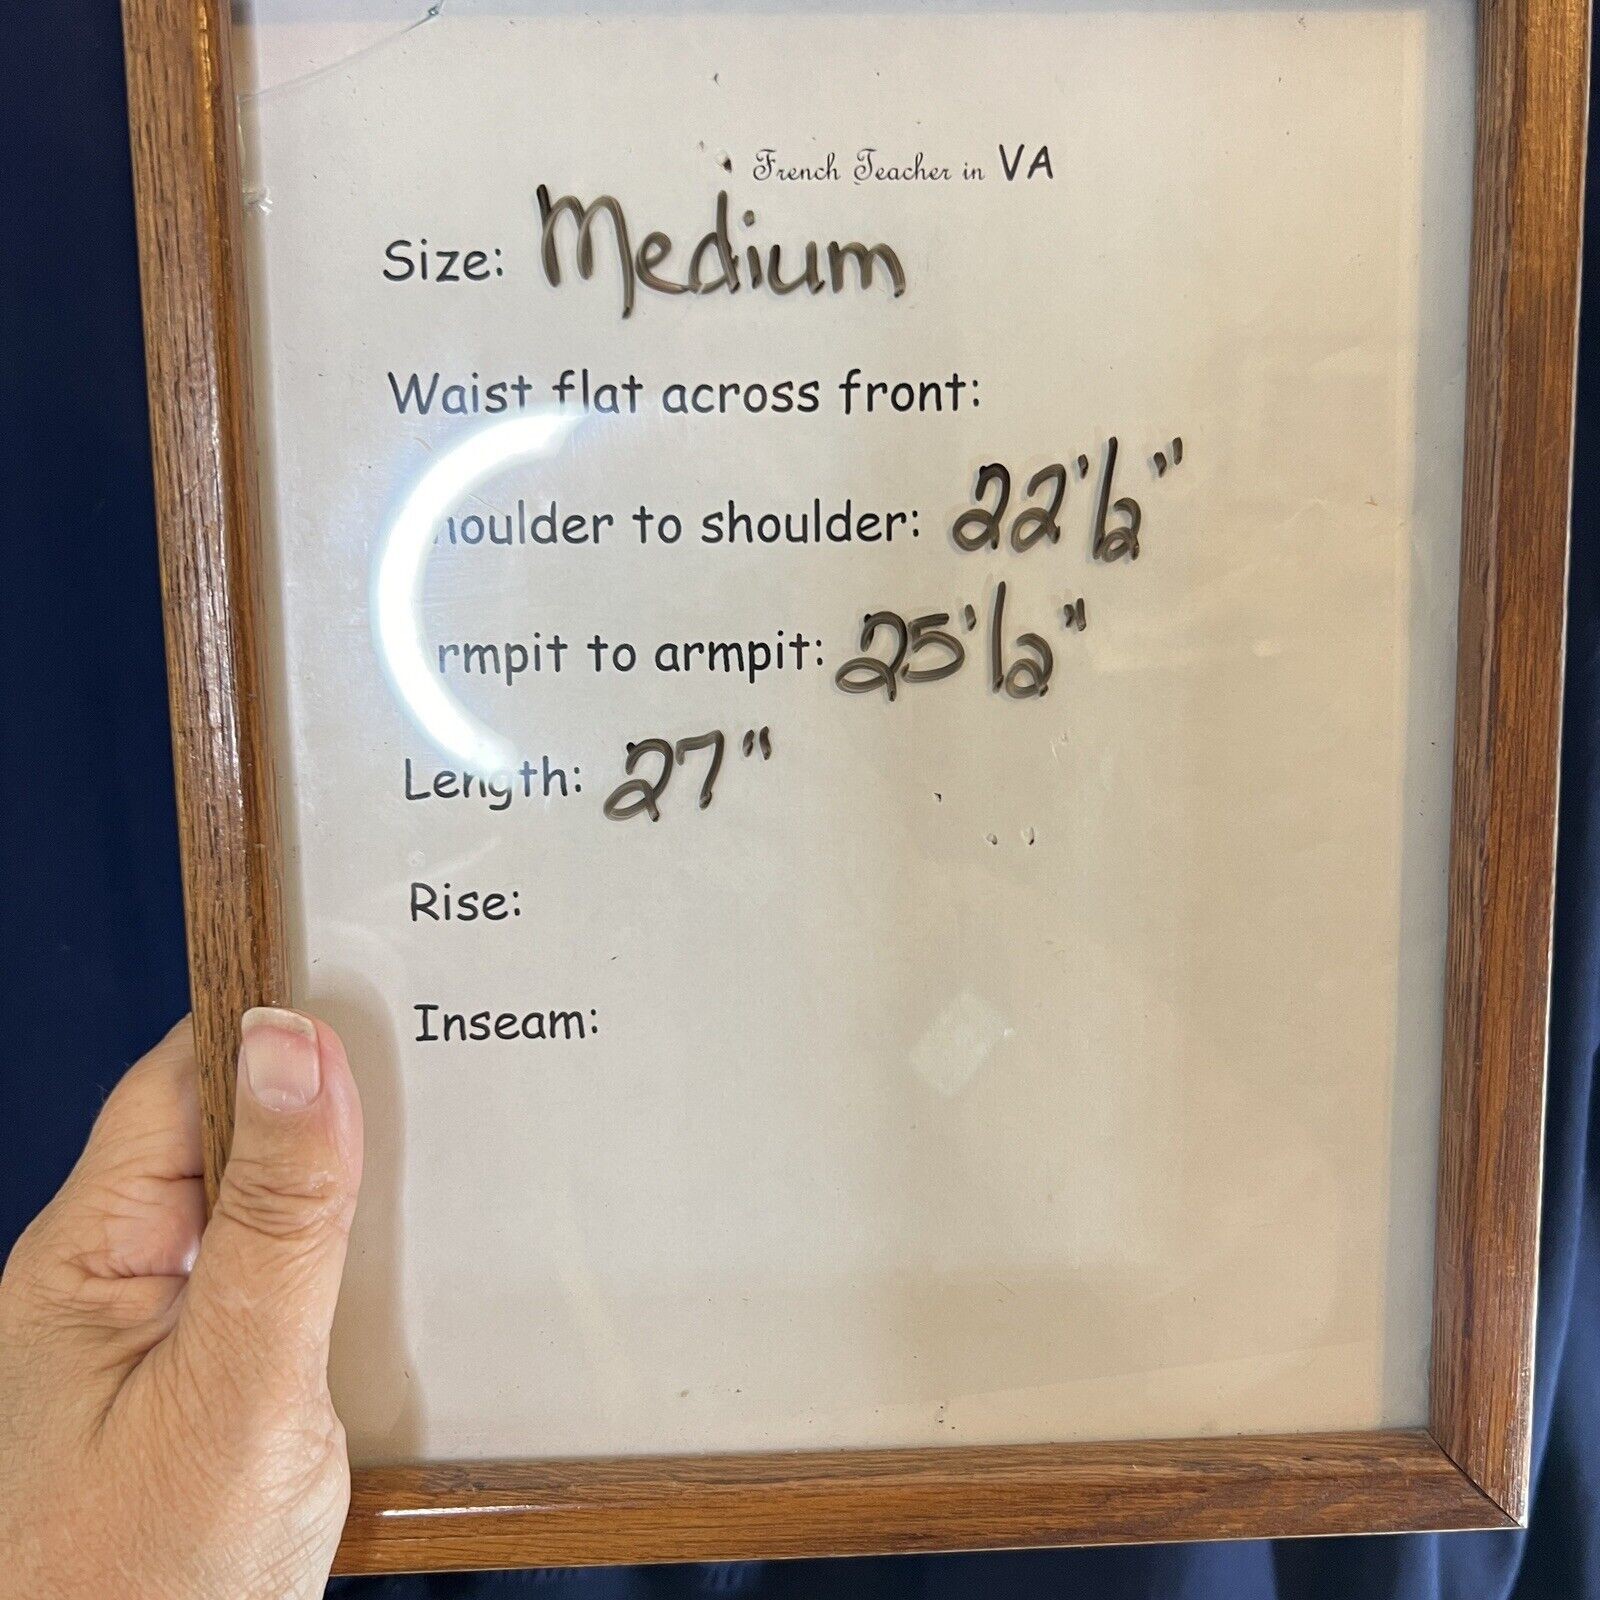 French Teacher in VA
Size: Medium
Waist flat across front:
houlder to shoulder: 22 1/2"
rmpit to armpit: 25 1/2"
Length: 27"
Rise:
Inseam: